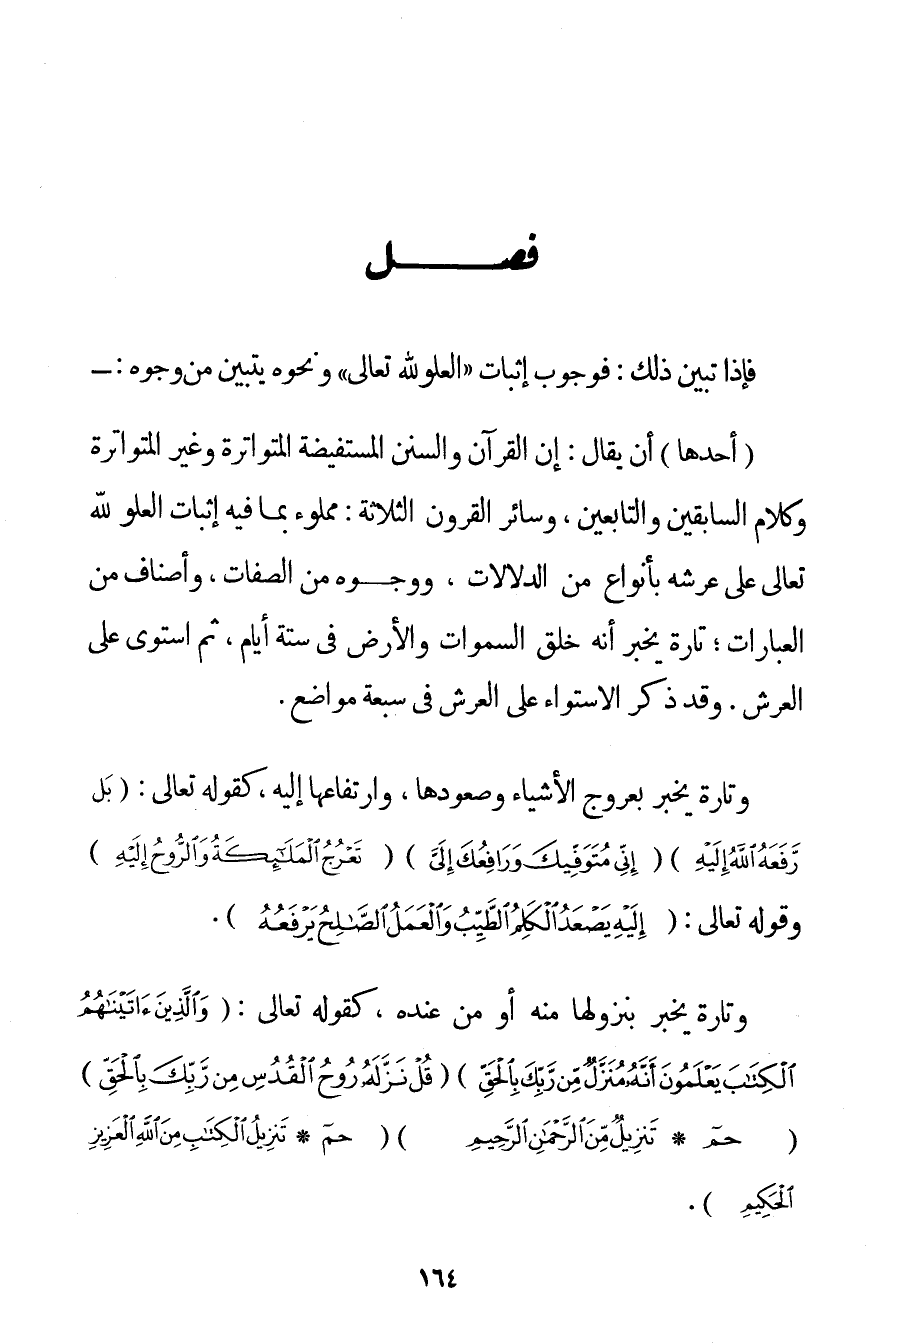 فصـــــل
فإذا تبين ذلك : فوجوب إثبات «العلو لله تعالى» ونحوه يتبين من وجوه : ــ
( أحدها ) أن يقال : إن القرآن والسنن المستفيضة المتواترة وغير المتواترة
وكلام السابقين والتابعين ، وسائر القرون الثلاثة : مملوء بما فيه إثبات العلو لله
تعالى على عرشه بأنواع من الدلالات ، ووجـــوه من الصفات ، وأصناف من
العبارات ؛ تارة يخبر أنه خلق السموات والأرض فى ستة أيام ، ثم استوى على
العرش . وقد ذكر الاستواء على العرش فى سبعة مواضع .
وتارة يخبر بعروج الأشياء وصعودها ، وارتفاعها إليه ، كقوله تعالى : ( بَل
رَّفَعَهُ ٱللَّهُ إِلَيْهِ ) ( إِنِّى مُتَوَفِّيكَ وَرَافِعُكَ إِلَىَّ ) ( تَعْرُجُ ٱلْمَلَٰٓئِكَةُ وَٱلرُّوحُ إِلَيْهِ )
وقوله تعالى : ( إِلَيْهِ يَصْعَدُ ٱلْكَلِمُ ٱلطَّيِّبُ وَٱلْعَمَلُ ٱلصَّٰلِحُ يَرْفَعُهُ ) .
وتارة يخبر بنزولها منه أو من عنده ، كقوله تعالى : ( وَٱلَّذِينَ ءَاتَيْنَٰهُمُ
ٱلْكِتَٰبَ يَعْلَمُونَ أَنَّهُۥ مُنَزَّلٌ مِّن رَّبِّكَ بِٱلْحَقِّ ) ( قُلْ نَزَّلَهُۥ رُوحُ ٱلْقُدُسِ مِن رَّبِّكَ بِٱلْحَقِّ )
( حمٓ * تَنزِيلٌ مِّنَ ٱلرَّحْمَٰنِ ٱلرَّحِيمِ ) ( حمٓ * تَنزِيلُ ٱلْكِتَٰبِ مِنَ ٱللَّهِ ٱلْعَزِيزِ
ٱلْحَكِيمِ ) .
١٦٤